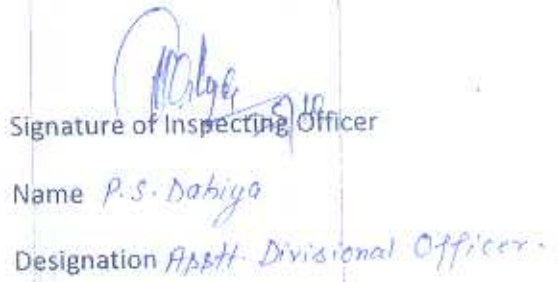 Signature of Inspecting Officer
Name P.S. Dahiya
Designation Asstt. Divisional Officer.